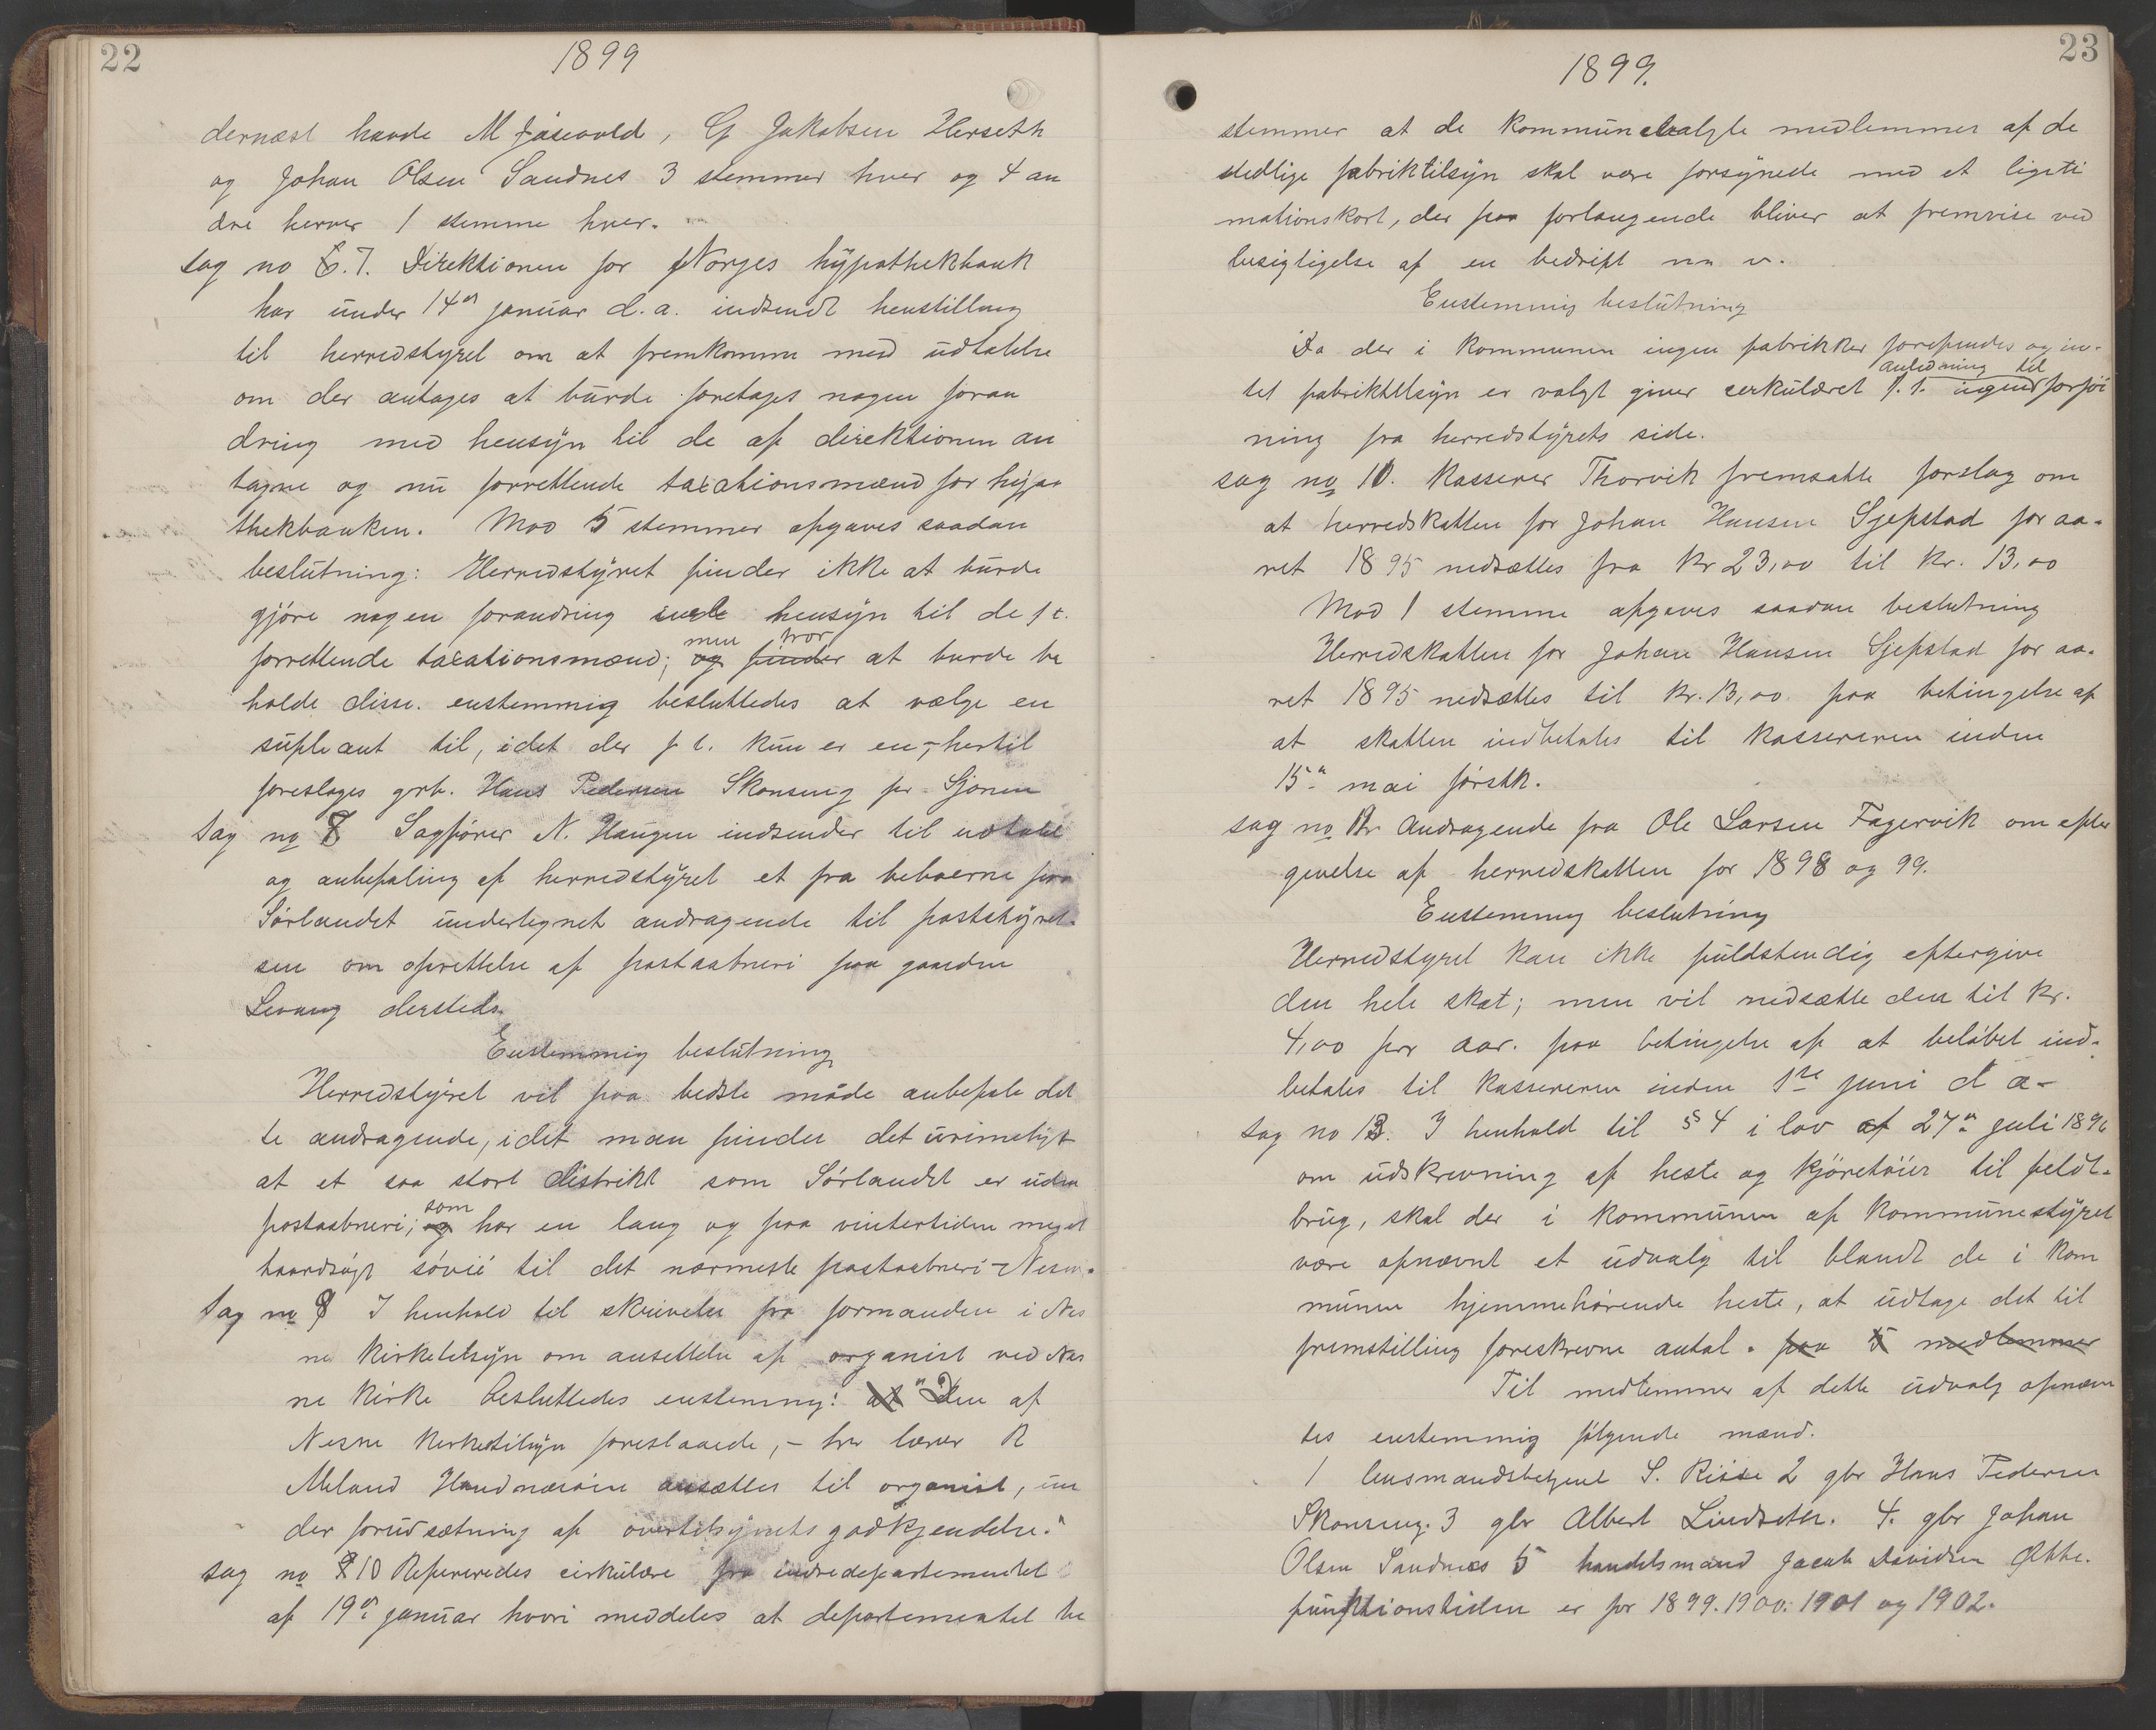 22
1899
dernæst havde M Jåsevold, G Jakobsen Herseth
og Johan Olsen Sandnes 3 stemmer hver og 4 an
dre herrer 1 stemme hver.
Sag no 7. Direktionen for Norges hypothekbank
har under 14de januar d.a. indsendt henstilling
til herredstyret om at fremkomme med udtalelse
om der antages at burde foretages nogen foran
dring med hensyn til de af direktionen an
tagne og nu forrettende taxationsmænd for hypo
thekbanken. Mod 5 stemmer afgaves saadan
beslutning: Herredstyret finder ikke at burde
gjöre nogen forandring hensyn til de f t.
forrettende taxationsmænd; men tror at burde be
holde disse. enstemmig besluttedes at vælge en
supleant til, idet der f t. kun er en,- hertil
foreslages grb. Hans Pedersen Skonseng pr Sjonen
Sag no 8 Sagförer N. Haugen indsender til udtalel
og anbefaling af herredstyret et fra beboerne paa
Sörlandet undertegnet andragende til poststyrel-
sen om oprettelse af postaabneri paa gaarden
Levang dersteds.
Enstemmig beslutning
Herredstyret vil paa bedste måde anbefale det
te andragende, idet man finder det urimeligt
at et saa stort distrikt som Sörlandet er uden
postaabneri; som har en lang og paa vintertiden meget
haardsögt sövei til det nærmeste postaabneri - Nesne.
Sag no 9 I henhold til skrivelse fra formanden i Nes
ne kirketilsyn om ansettelse af organist ved Nes
ne kirke besluttedes enstemmig: "Den af
Nesne kirketilsyn foreslaaede, - hr lærer R
Meland Handnæsöen ansættes til organist, un
der forudsætning af overtilsynets godkjendelse."
sag no 10 Refereredes cirkulære fra indredepartementet
af 19de januar hvori meddeles at departementet be
23
1899.
stemmer at de kommunevalgte medlemmer af de
stedlige fabriktilsyn skal være forsynede med et ligiti
mationskort, der paa forlangende bliver at fremvise ved
besigtigelse af en bedrift m v.
Enstemmig beslutning
Da der i kommunen ingen fabrikker forefindes og in-
tet fabriktilsyn er valgt giver cirkulæret f. t. ingen anledning til forföi
ning fra herredstyrets side.
sag no 11. Kasserer Thorvik fremsatte forslag om
at herredskatten for Johan Hansen Sjefstad for aa-
ret 1895 nedsættes fra Kr 23,00 til Kr. 13,00
Mod 1 stemme afgaves saadan beslutning
Herredskatten for Johan Hansen Sjefstad for aa-
ret 1895 nedsættes til Kr. 13,00 paa betingelse af
at skatten indbetales til kassereren inden
15de mai förstk.
sag no 12 Andragende fra Ole Larsen Fagervik om efter
givelse af herredskatten for 1898 og 99.
Enstemmig beslutning
Herredstyret kan ikke fuldstendig eftergive
den hele skat; men vil nedsætte den til Kr.
4,00 per aar. paa betingelse af at belöbet ind-
betales til kassereren inden 1ste juni d a-
Sag no 13. I henhold til § 4 i lov af 27de juli 1896
om udskrivning af heste og kjöretöier til feldt-
brug, skal der i kommunen af kommunestyret
være opnævnt et udvalg til blandt de i kom
munen hjemmehörende heste, at udtage det til
fremstilling foreskrevne antal. paa 5 medlemmer
Til medlemmer af dette udvalg opnævn
tes enstemmig fölgende mænd.
1 lensmandsbetjent S. Risse 2 gbr Hans Pedersen
Skonseng. 3 gbr Albert Lindseth. 4. gbr Johan
Olsen Sandnæs 5 handelsmand Jacob Davidsen
funktionstiden er for 1899. 1900. 1901 og 1902.